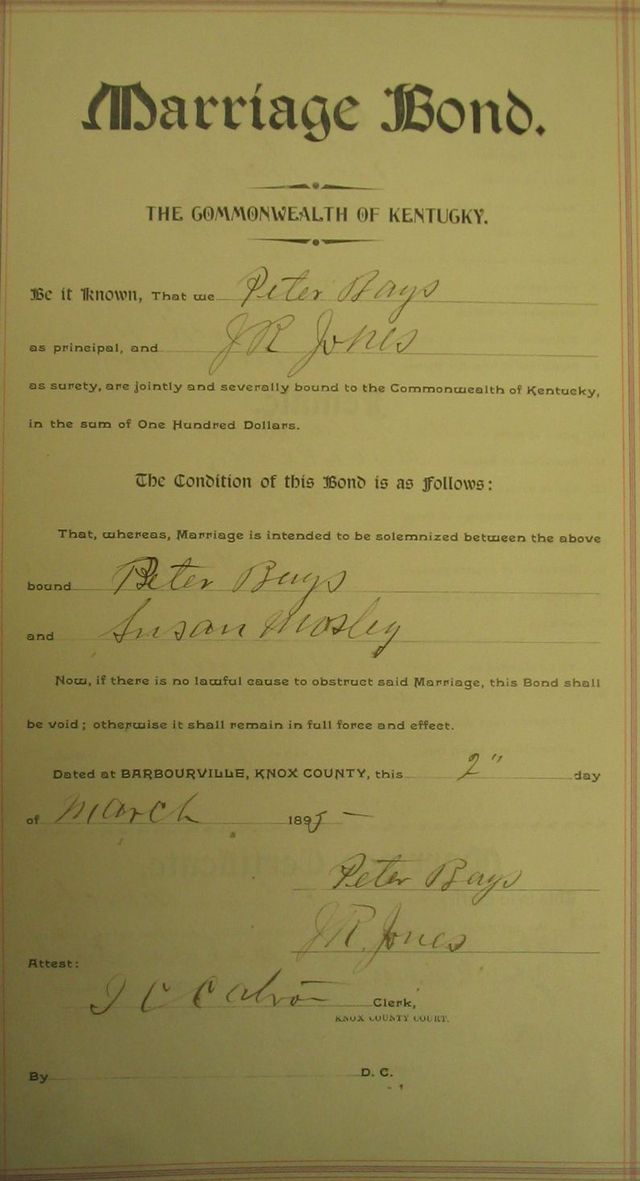 Marriage Bond.
THE COMMONWEALTH OF KENTUCKY.
Be it Known, That we Peter Bays
as principal, and J R Jones
as surety, are jointly and severally bound to the Commonwealth of Kentucky,
in the sum of One Hundred Dollars.
The Condition of this Bond is as Follows:
That, whereas, Marriage is intended to be solemnized between the above
bound Peter Bays
and Susan Mosley
Now, if there is no lawful cause to obstruct said Marriage, this Bond shall
be void; otherwise it shall remain in full force and effect.
Dated at BARBOURVILLE, KNOX COUNTY, this 2" day
of March 1895
Peter Bays
J R Jones
Attest:
Clerk,
KNOX COUNTY COURT.
By D. C.